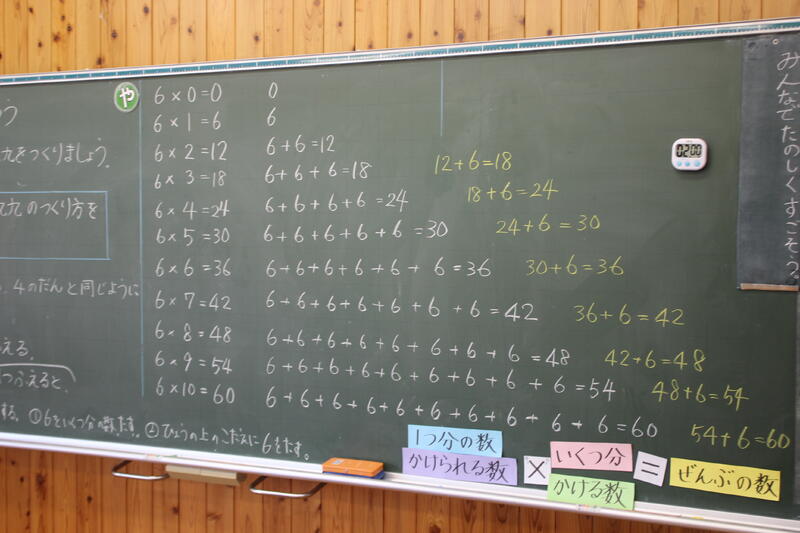 う
や
九をつくりましょう。
九九のつくり方を
4のだんと同じように
える。
つふえると、
する。①6をいくつ分の数たす。②ひょうの上のこたえに6をたす。
6×0=0 0
6×1=6 6
6×2=12 6+6=12
6×3=18 6+6+6=18 12+6=18
6×4=24 6+6+6+6=24 18+6=24
6×5=30 6+6+6+6+6=30 24+6=30
6×6=36 6+6+6+6+6+6=36 30+6=36
6×7=42 6+6+6+6+6+6+6=42 36+6=42
6×8=48 6+6+6+6+6+6+6+6=48 42+6=48
6×9=54 6+6+6+6+6+6+6+6+6=54 48+6=54
6×10=60 6+6+6+6+6+6+6+6+6+6=60 54+6=60
02:00
みんなでたのしくすごそう。
1つ分の数 いくつ分
かけられる数 × かける数 = ぜんぶの数